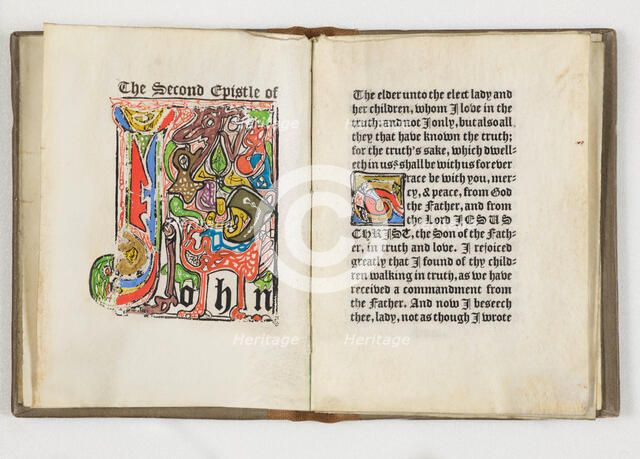 The Second Epistle of
John
The elder unto the elect lady and
her children, whom I love in the
truth: and not I only, but also all
they that have known the truth;
for the truth's sake, which dwell-
eth in us, & shall be with us forever
Grace be with you, mer-
cy, & peace, from God
the Father, and from
the Lord JESUS
CHRIST, the Son of the Fath-
er, in truth and love. I rejoiced
greatly that I found of thy child-
ren walking in truth, as we have
received a commandment from
the Father. And now I beseech
thee, lady, not as though I wrote
Heritage
Heritage
Heritage
Heritage